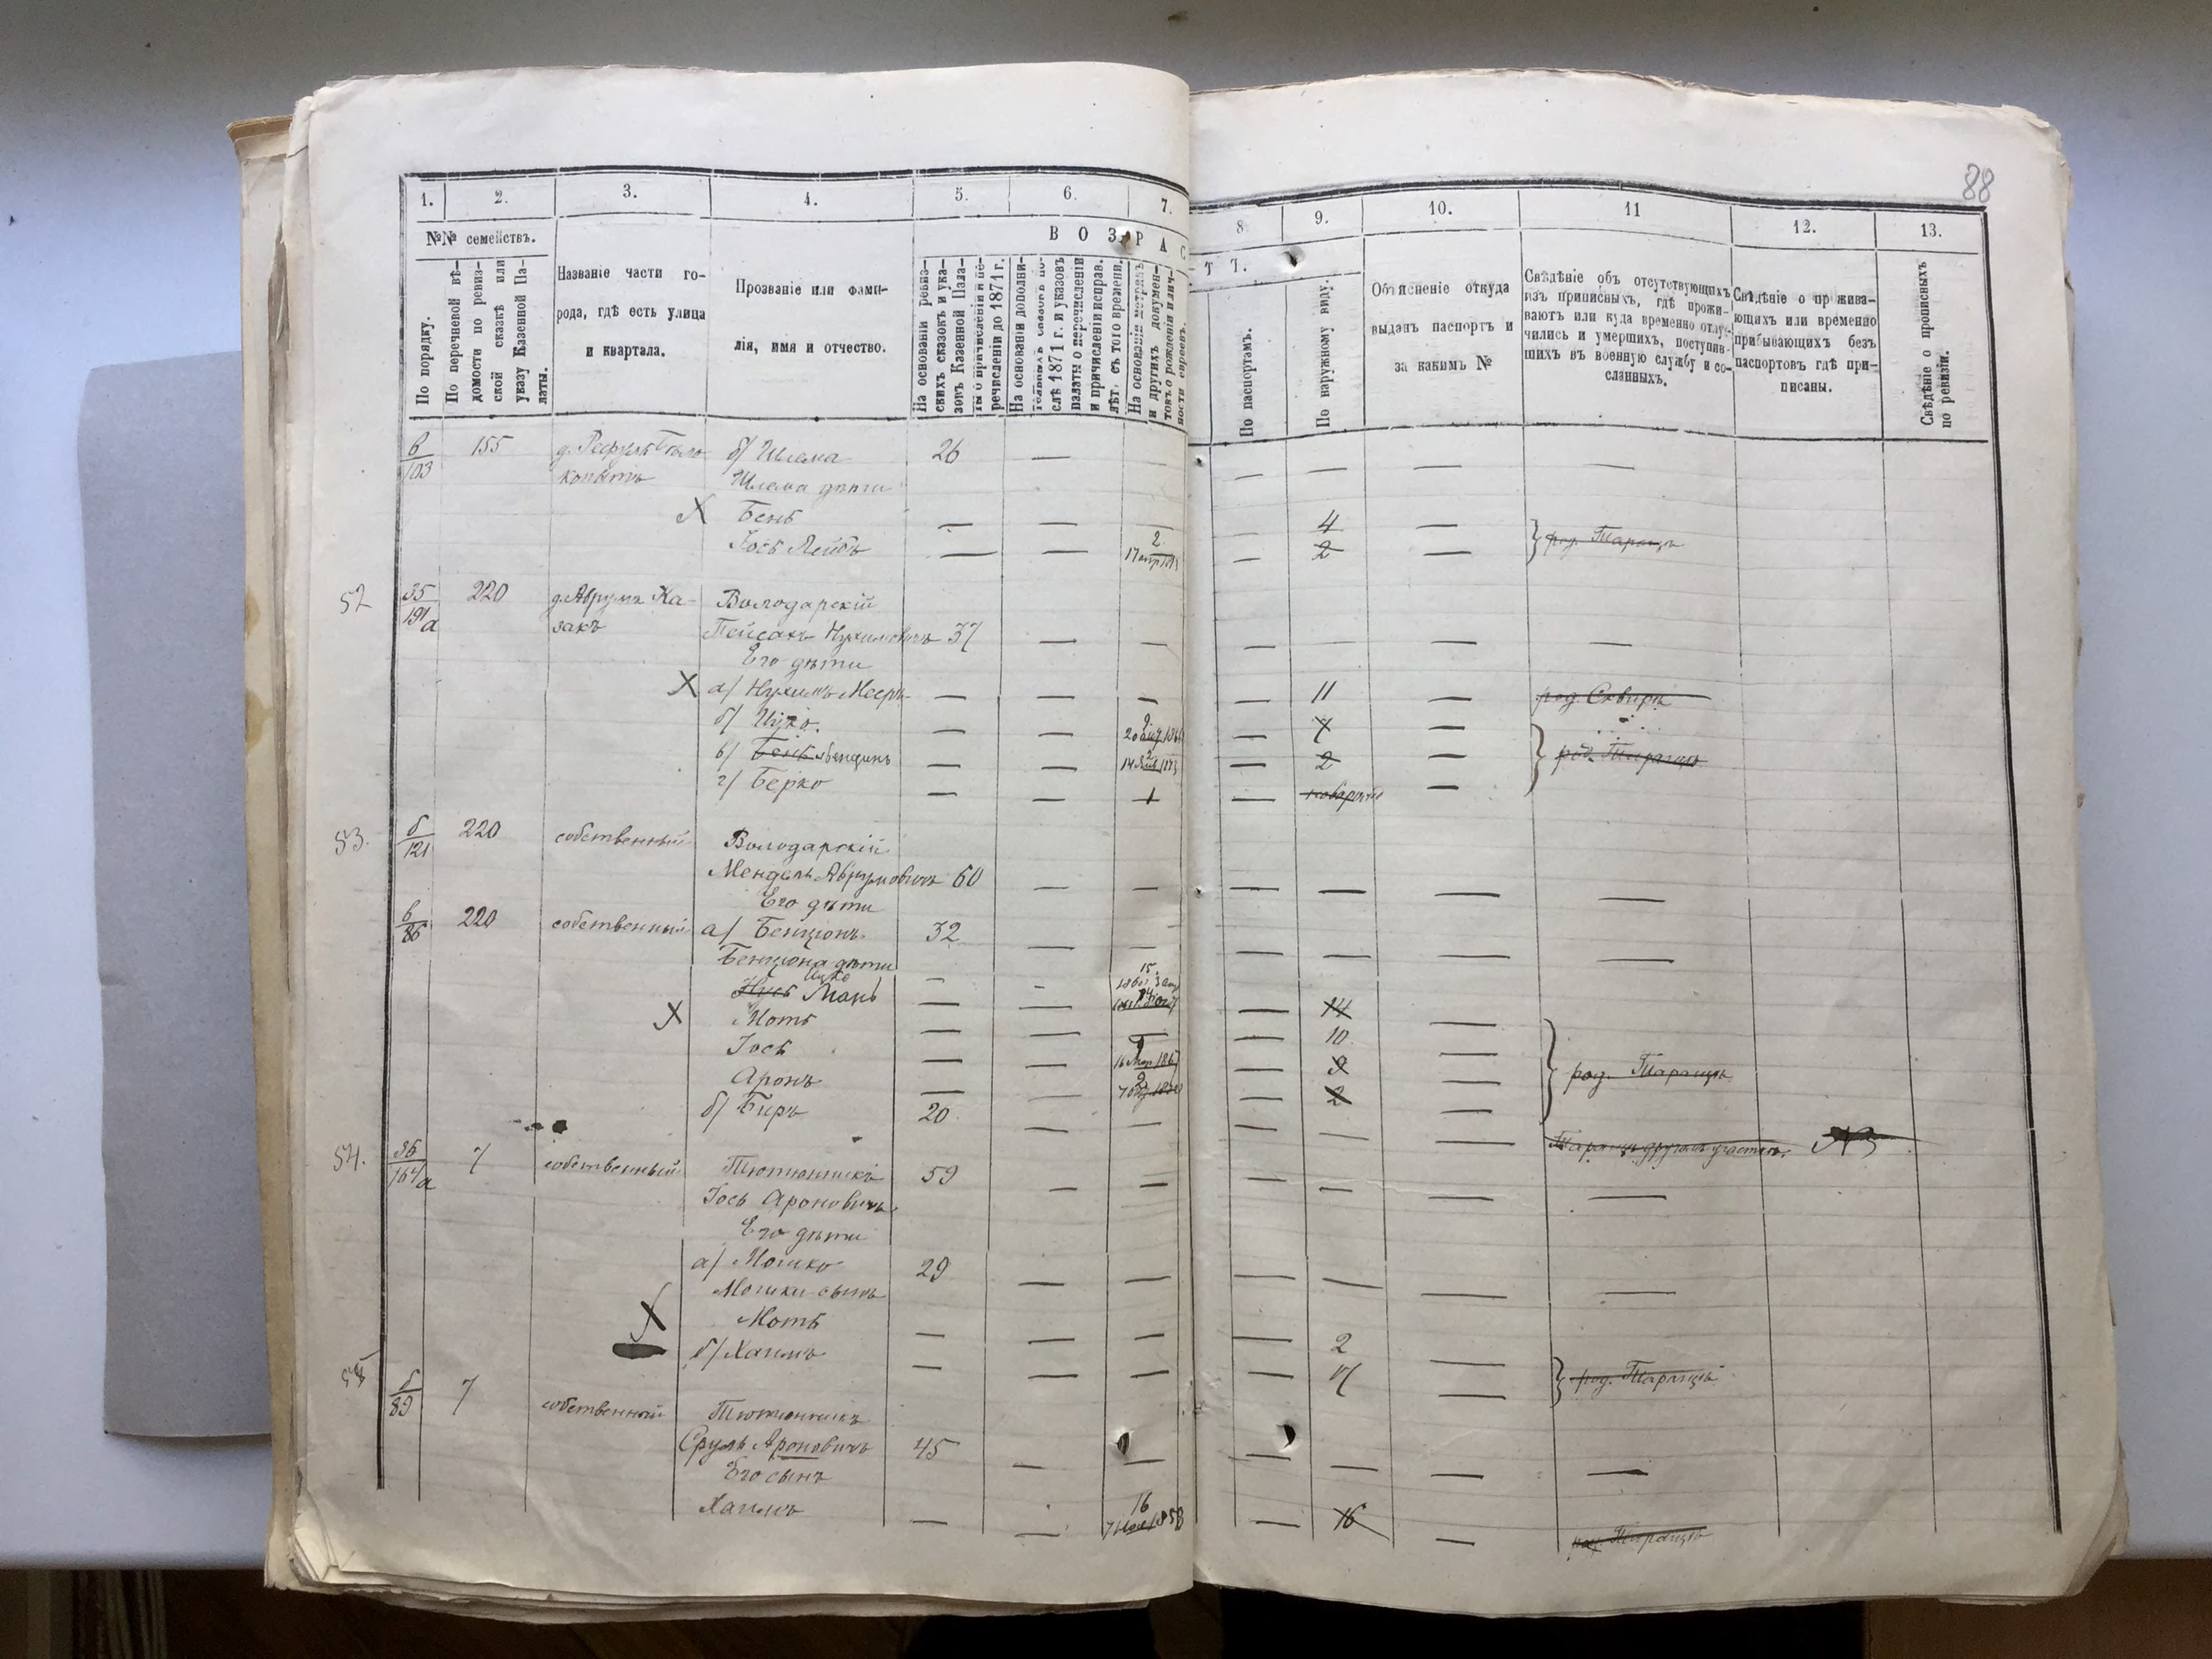 88
1. 2. 3. 4. 5. 6. 7. 8. 9. 10. 11 12. 13.
№№ семействъ.
В О З Р А С Т Ъ.
По порядку.
По перечневой вѣ-
домости по ревиз-
ской сказкѣ или
указу Казенной Па-
латы.
Названіе части го-
рода, гдѣ есть улица
и квартала.
Прозваніе или фами-
лія, имя и отчество.
На основаніи ревиз-
скихъ сказокъ и ука-
зовъ Казенной Пала-
ты о причисленіи и пе-
речисленіи до 1871 г.
На основаніи дополни-
слѣ 1871 г. и указовъ
палаты о перечисленіи
и причисленіи исправ.
лѣтъ съ того времени.
На основаніи метрикъ
и другихъ докумен-
товъ о рожденіи и лич-
ности евреевъ.
По паспортамъ.
По наружному виду.
Объясненіе откуда
выданъ паспортъ и
за какимъ №
Свѣдѣніе объ отсутствующихъ
изъ приписныхъ, гдѣ прожи-
ваютъ или куда временно отлу-
чились и умершихъ, поступив-
шихъ въ военную службу и со-
сланныхъ.
Свѣдѣніе о прожива-
ющихъ или временно
прибывающихъ безъ
паспортовъ гдѣ при-
писаны.
Свѣдѣніе о прописныхъ
по ревизіи.
в/103 155 б/ Шлема 26 — — — — —
Шлема дѣти
X Бень — — — 4 —
Іось Лейбъ — — 2 — 2 — род. Тараща
17 апр
52 35/191а 220 д. Аврума Ка- Володарскій
закъ Пейсахъ Нухимовичъ 37 — — — — — —
Его дѣти
X а/ Нухимъ Мееръ — — — — 11 — род. Сквира
б/ Ицко. — — — —
в/ Бень Бенціонъ — — — 2 — род. Тараща
г/ Берко — — 1 — —
53. б/121 220 собственный Володарскій
Мендель Аврумовичъ 60 — — — — — —
Его дѣти
в/86 220 собственный а/ Бенціонъ 32 — — — — — —
Бенціона дѣти
Ицко
Нусь Мань — — 15 — 14 —
X Моть — — — 10 —
Іось — — — —
16 1867
Аронъ — — 2 — 2 — род. Тараща
б/ Беръ 20 — — — — —
54. 36/164а 7 собственный Тютюнникъ 59 — — — — — —
Іось Ароновичъ
Его дѣти
а/ Мошко 29 — — — — — —
Мошки сынъ
X Моть — — — — 2 —
б/ Хаимъ — — — — — род. Тараща
55 б/89 7 собственный Тютюнникъ
Сруль Ароновичъ 45 — — — — — —
Его сынъ
Хаимъ — — 16 — 16 — род. Тараща
7 1858